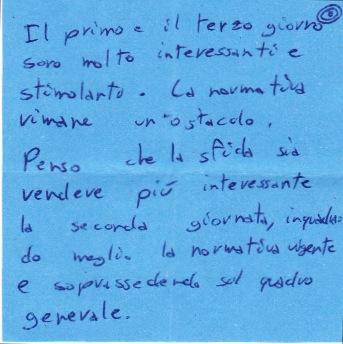 Il primo e il terzo giorno
sono molto interessanti e
stimolanti. La normativa
rimane un ostacolo.
Penso che la sfida sia
rendere più interessante
la seconda giornata, inquadran=
do meglio la normativa vigente
e soprassedendo sul quadro
generale.